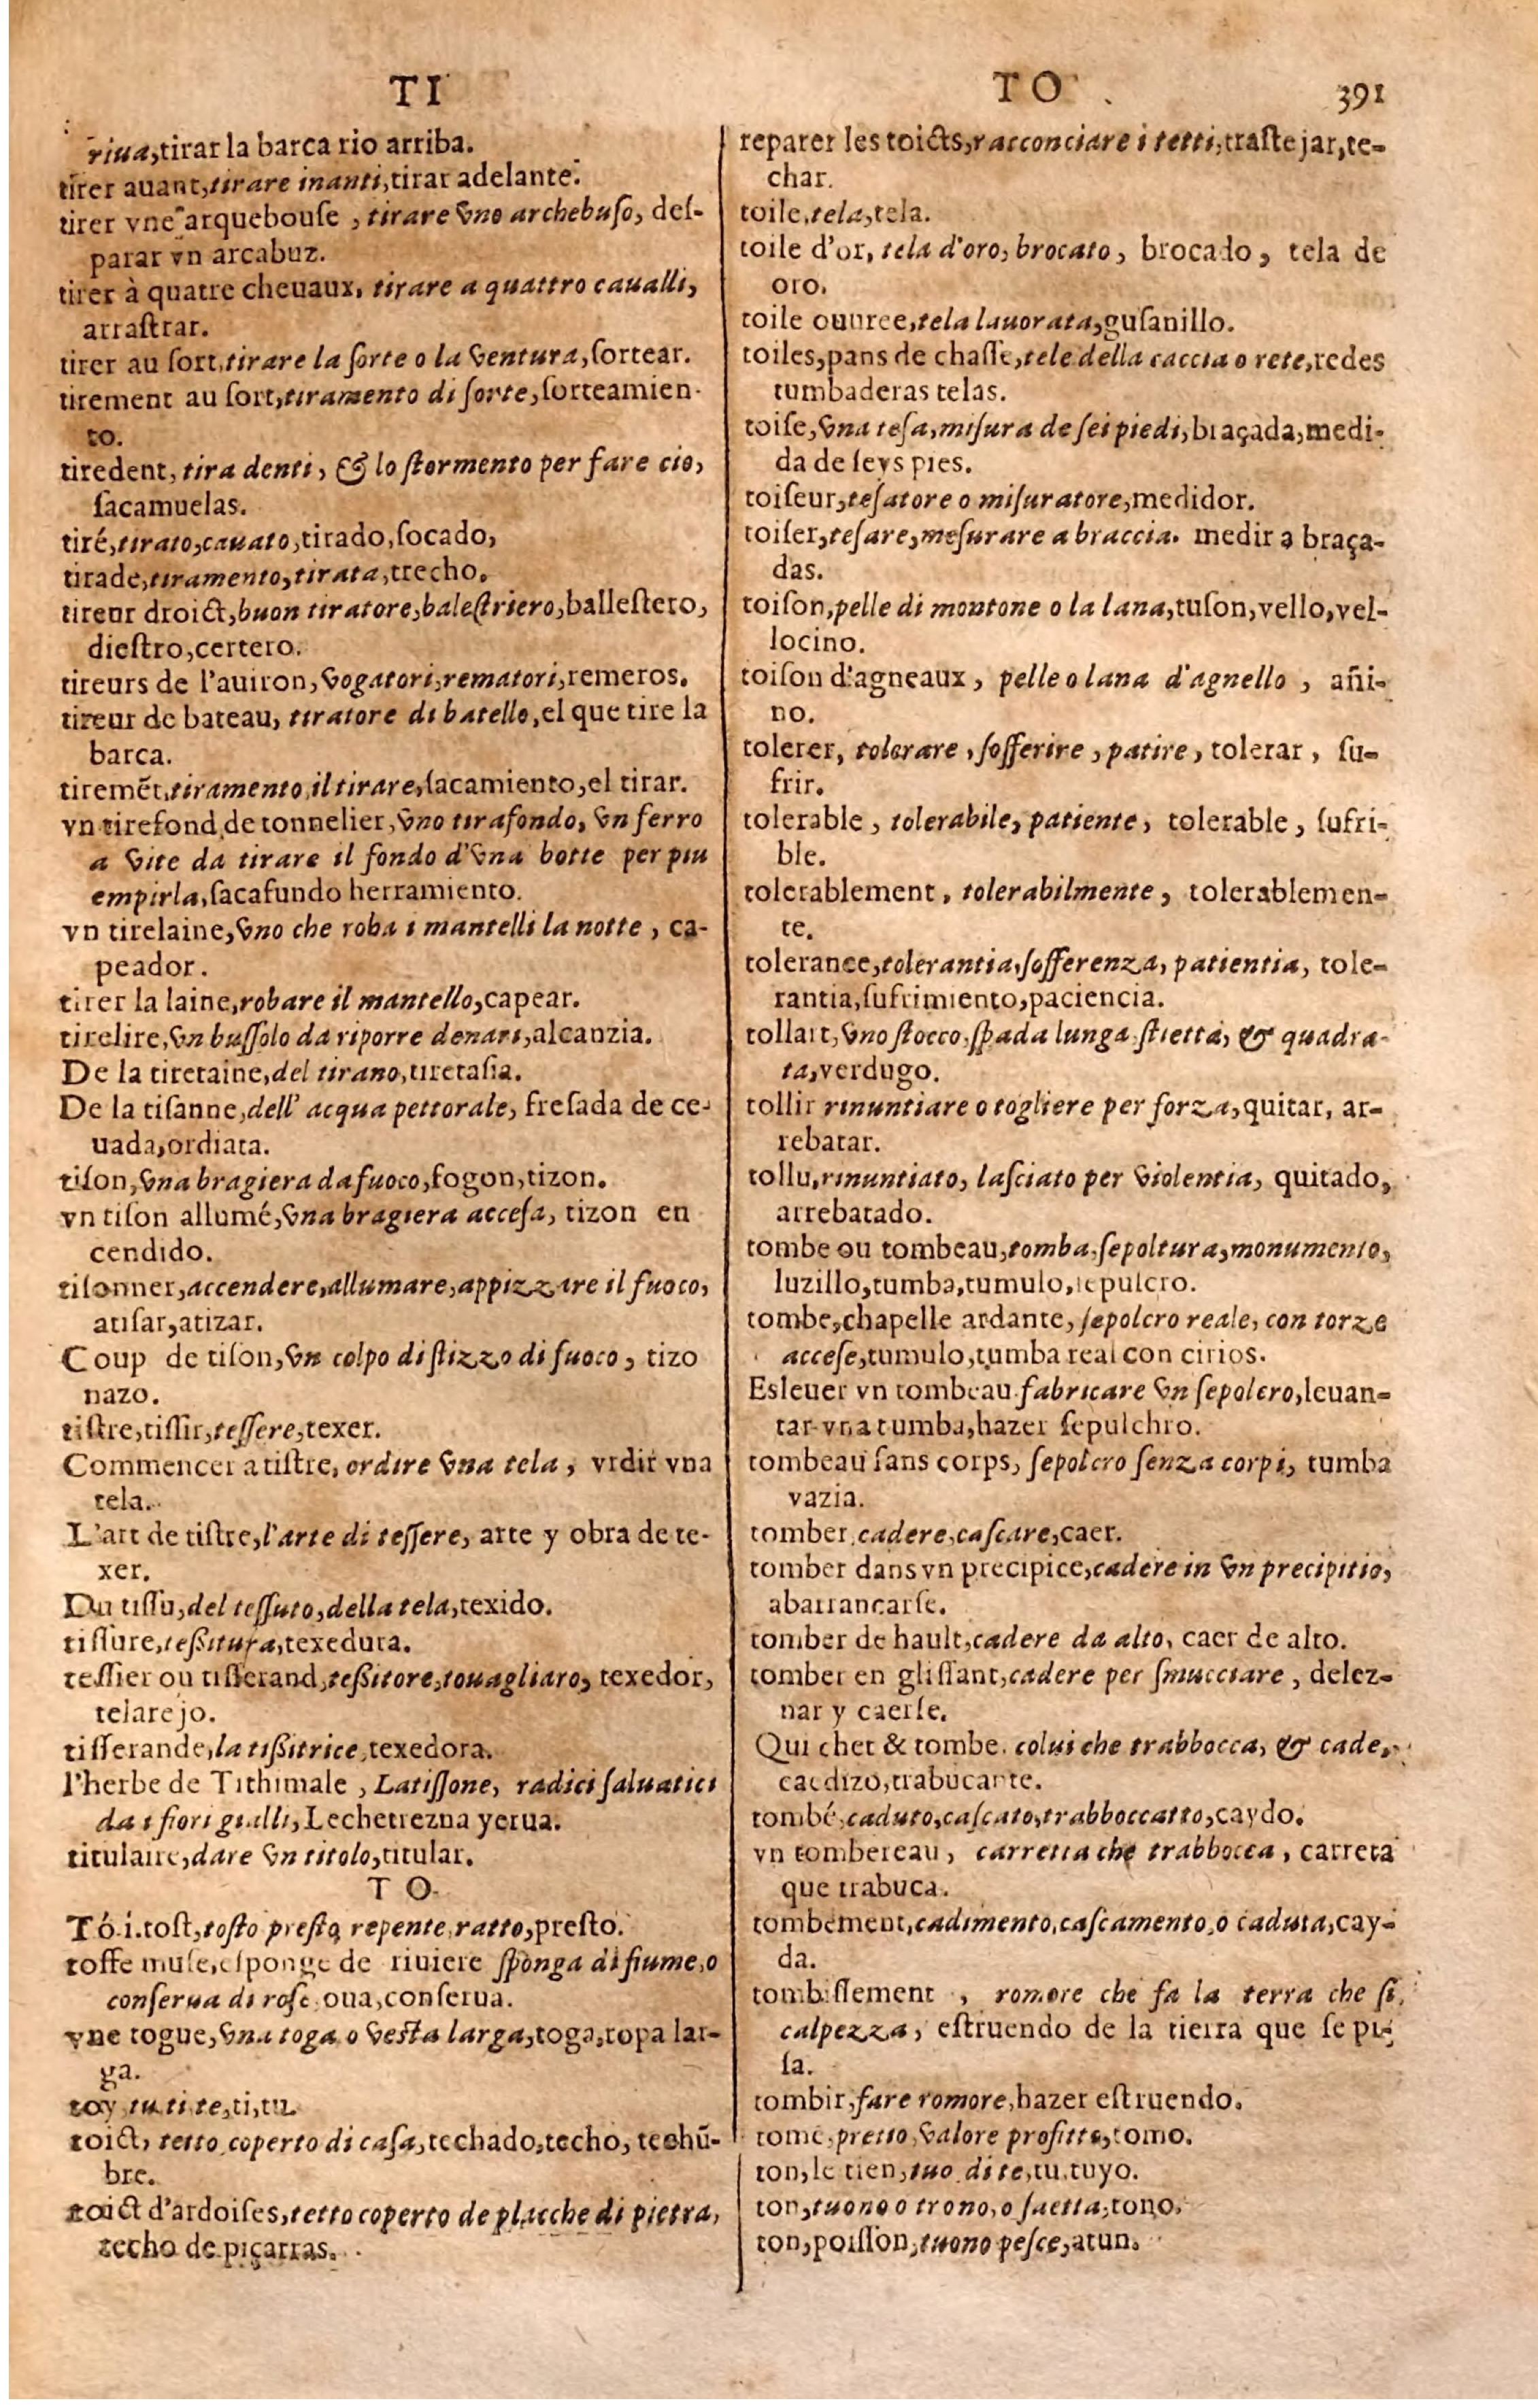 TI
TO
391
riua,tirar la barca rio arriba.
tirer auant,tirare inanti,tirar adelante.
tirer vne arquebouſe , tirare vno archebuſo, deſ-
parar vn arcabuz.
tirer à quatre cheuaux, tirare a quattro caualli,
arraſtrar.
tirer au ſort,tirare la ſorte o la ventura,ſortear.
tirement au ſort,tiramento di ſorte,ſorteamien-
to.
tiredent, tira denti, & lo ſtormento per fare cio,
ſacamuelas.
tiré,tirato,cauato,tirado,ſocado,
tirade,tiramento,tirata,trecho.
tireur droict,buon tiratore,baleſtriero,balleſtero,
dieſtro,certero.
tireurs de l'auiron,vogatori,rematori,remeros.
tireur de bateau, tiratore di batello,el que tire la
barca.
tiremẽt,tiramento,il tirare,ſacamiento,el tirar.
vn tirefond de tonnelier,vno tirafondo, vn ferro
a vite da tirare il fondo d'vna botte per piu
empirla,ſacafundo herramiento.
vn tirelaine,vno che roba i mantelli la notte , ca-
peador.
tirer la laine,robare il mantello,capear.
tirelire,vn buſſolo da riporre denari,alcanzia.
De la tiretaine,del tirano,tiretaſia.
De la tiſanne,dell' acqua pettorale, freſada de ce-
uada,ordiata.
tiſon,vna bragiera da fuoco,fogon,tizon.
vn tiſon allumé,vna bragiera acceſa, tizon en
cendido.
tiſonner,accendere,allumare,appizzare il fuoco,
atiſar,atizar.
Coup de tiſon,vn colpo di ſtizzo di fuoco, tizo
nazo.
tiſtre,tiſſir,teſſere,texer.
Commencer a tiſtre, ordire vna tela , vrdir vna
tela.
L'art de tiſtre,l'arte di teſſere, arte y obra de te-
xer.
Du tiſſu,del teſſuto,della tela,texido.
tiſſure,teßitura,texedura.
teſſier ou tiſſerand,teßitore,touagliaro, texedor,
telarejo.
tiſſerande,la tißitrice,texedora.
l'herbe de Tithimale , Latiſſone, radici ſaluatici
da i fiori gialli,Lechetrezna yerua.
titulaire,dare vn titolo,titular.
TO.
Tó.i.toſt,toſto preſto, repente,ratto,preſto.
toffe muſe,eſponge de riuiere ſponga di fiume,o
conſerua di roſe oua,conſerua.
vne togue,vna toga o veſta larga,toga,ropa lar-
ga.
toy tu ti te,ti,tu.
toict, tetto coperto di caſa,techado,techo, techũ-
bre.
toict d'ardoiſes,tetto coperto de placche di pietra,
techo de piçarras.
reparer les toicts,racconciare i tetti,traſtejar,te-
char.
toile,tela,tela.
toile d'or, tela d'oro, brocato , brocado , tela de
oro.
toile ouuree,tela lauorata,guſanillo.
toiles,pans de chaſſe,tele della caccia o rete,redes
tumbaderas telas.
toiſe,vna teſa,miſura de ſei piedi,braçada,medi-
da de ſeys pies.
toiſeur,teſatore o miſuratore,medidor.
toiſer,teſare,meſurare a braccia. medir a braça-
das.
toiſon,pelle di montone o la lana,tuſon,vello,vel-
locino.
toiſon d'agneaux , pelle o lana d'agnello , añi-
no.
tolerer, tolerare , ſofferire , patire , tolerar , ſu-
frir.
tolerable , tolerabile, patiente , tolerable , ſufri-
ble.
tolerablement , tolerabilmente , tolerablemen-
te.
tolerance,tolerantia,ſofferenza, patientia, tole-
rantia,ſufrimiento,paciencia.
tollart,vno ſtocco,ſpada lunga ſtretta, & quadra-
ta,verdugo.
tollir rinuntiare o togliere per forza,quitar, ar-
rebatar.
tollu,rinuntiato, laſciato per violentia, quitado,
arrebatado.
tombe ou tombeau,tomba,ſepoltura,monumento,
luzillo,tumba,tumulo,ſepulcro.
tombe,chapelle ardante, ſepolcro reale, con torze
acceſe,tumulo,tumba real con cirios.
Esleuer vn tombeau fabricare vn ſepolcro,leuan-
tar vna tumba,hazer ſepulchro.
tombeau ſans corps, ſepolcro ſenza corpi, tumba
vazia.
tomber,cadere,caſcare,caer.
tomber dans vn precipice,cadere in vn precipitio,
abarrancarſe.
tomber de hault,cadere da alto, caer de alto.
tomber en gliſſant,cadere per ſmucciare , delez-
nar y caerſe.
Qui chet & tombe. colui che trabbocca, & cade,
caedizo,trabucante.
tombé,caduto,caſcato,trabboccatto,caydo.
vn tombereau , carretta che trabbocca , carreta
que trabuca.
tombement,cadimento,caſcamento,o caduta,cay-
da.
tombiſſement , romore che fa la terra che ſi
calpezza, eſtruendo de la tierra que ſe pi-
ſa.
tombir,fare romore,hazer eſtruendo.
tome,pretio,valore profitto,tomo.
ton,le tien,tuo di te,tu,tuyo.
ton,tuono o trono,o ſaetta,tono.
ton,poiſſon,tuono peſce,atun.